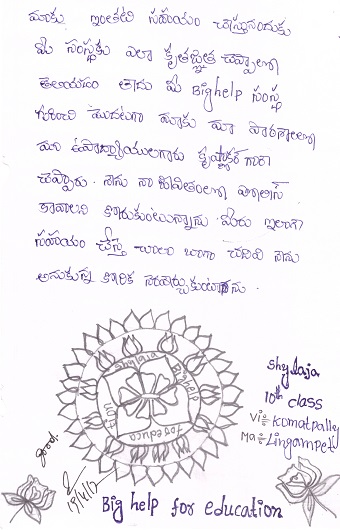 మాకు ఇంతటి సహాయం చేస్తునందుకు
మీ సంస్థకు ఎలా కృతజ్ఞత చెప్పాలో
తెలియడం లేదు మీ Bighelp సంస్థ
గురించి మొదటగా మాకు మా పాఠశాలలో
మా ఉపాధ్యాయులుగారు కృష్ణాకర్ గారు
చెప్పారు. నేను నా జీవితంలో పోలీస్
కావాలని కోరుకుంటున్నాను. మీరు ఇలాగే
సహాయం చేస్తే చాలా బాగా చదివి నేను
అనుకున్న కోరిక నెరవేర్చుకుంటాను.
shylaja
Bighelp
for educa
tion
shylaja
10th class
Vi÷ Komatpally
Ma÷ Lingampet
good.
19/4/12
Big help for education